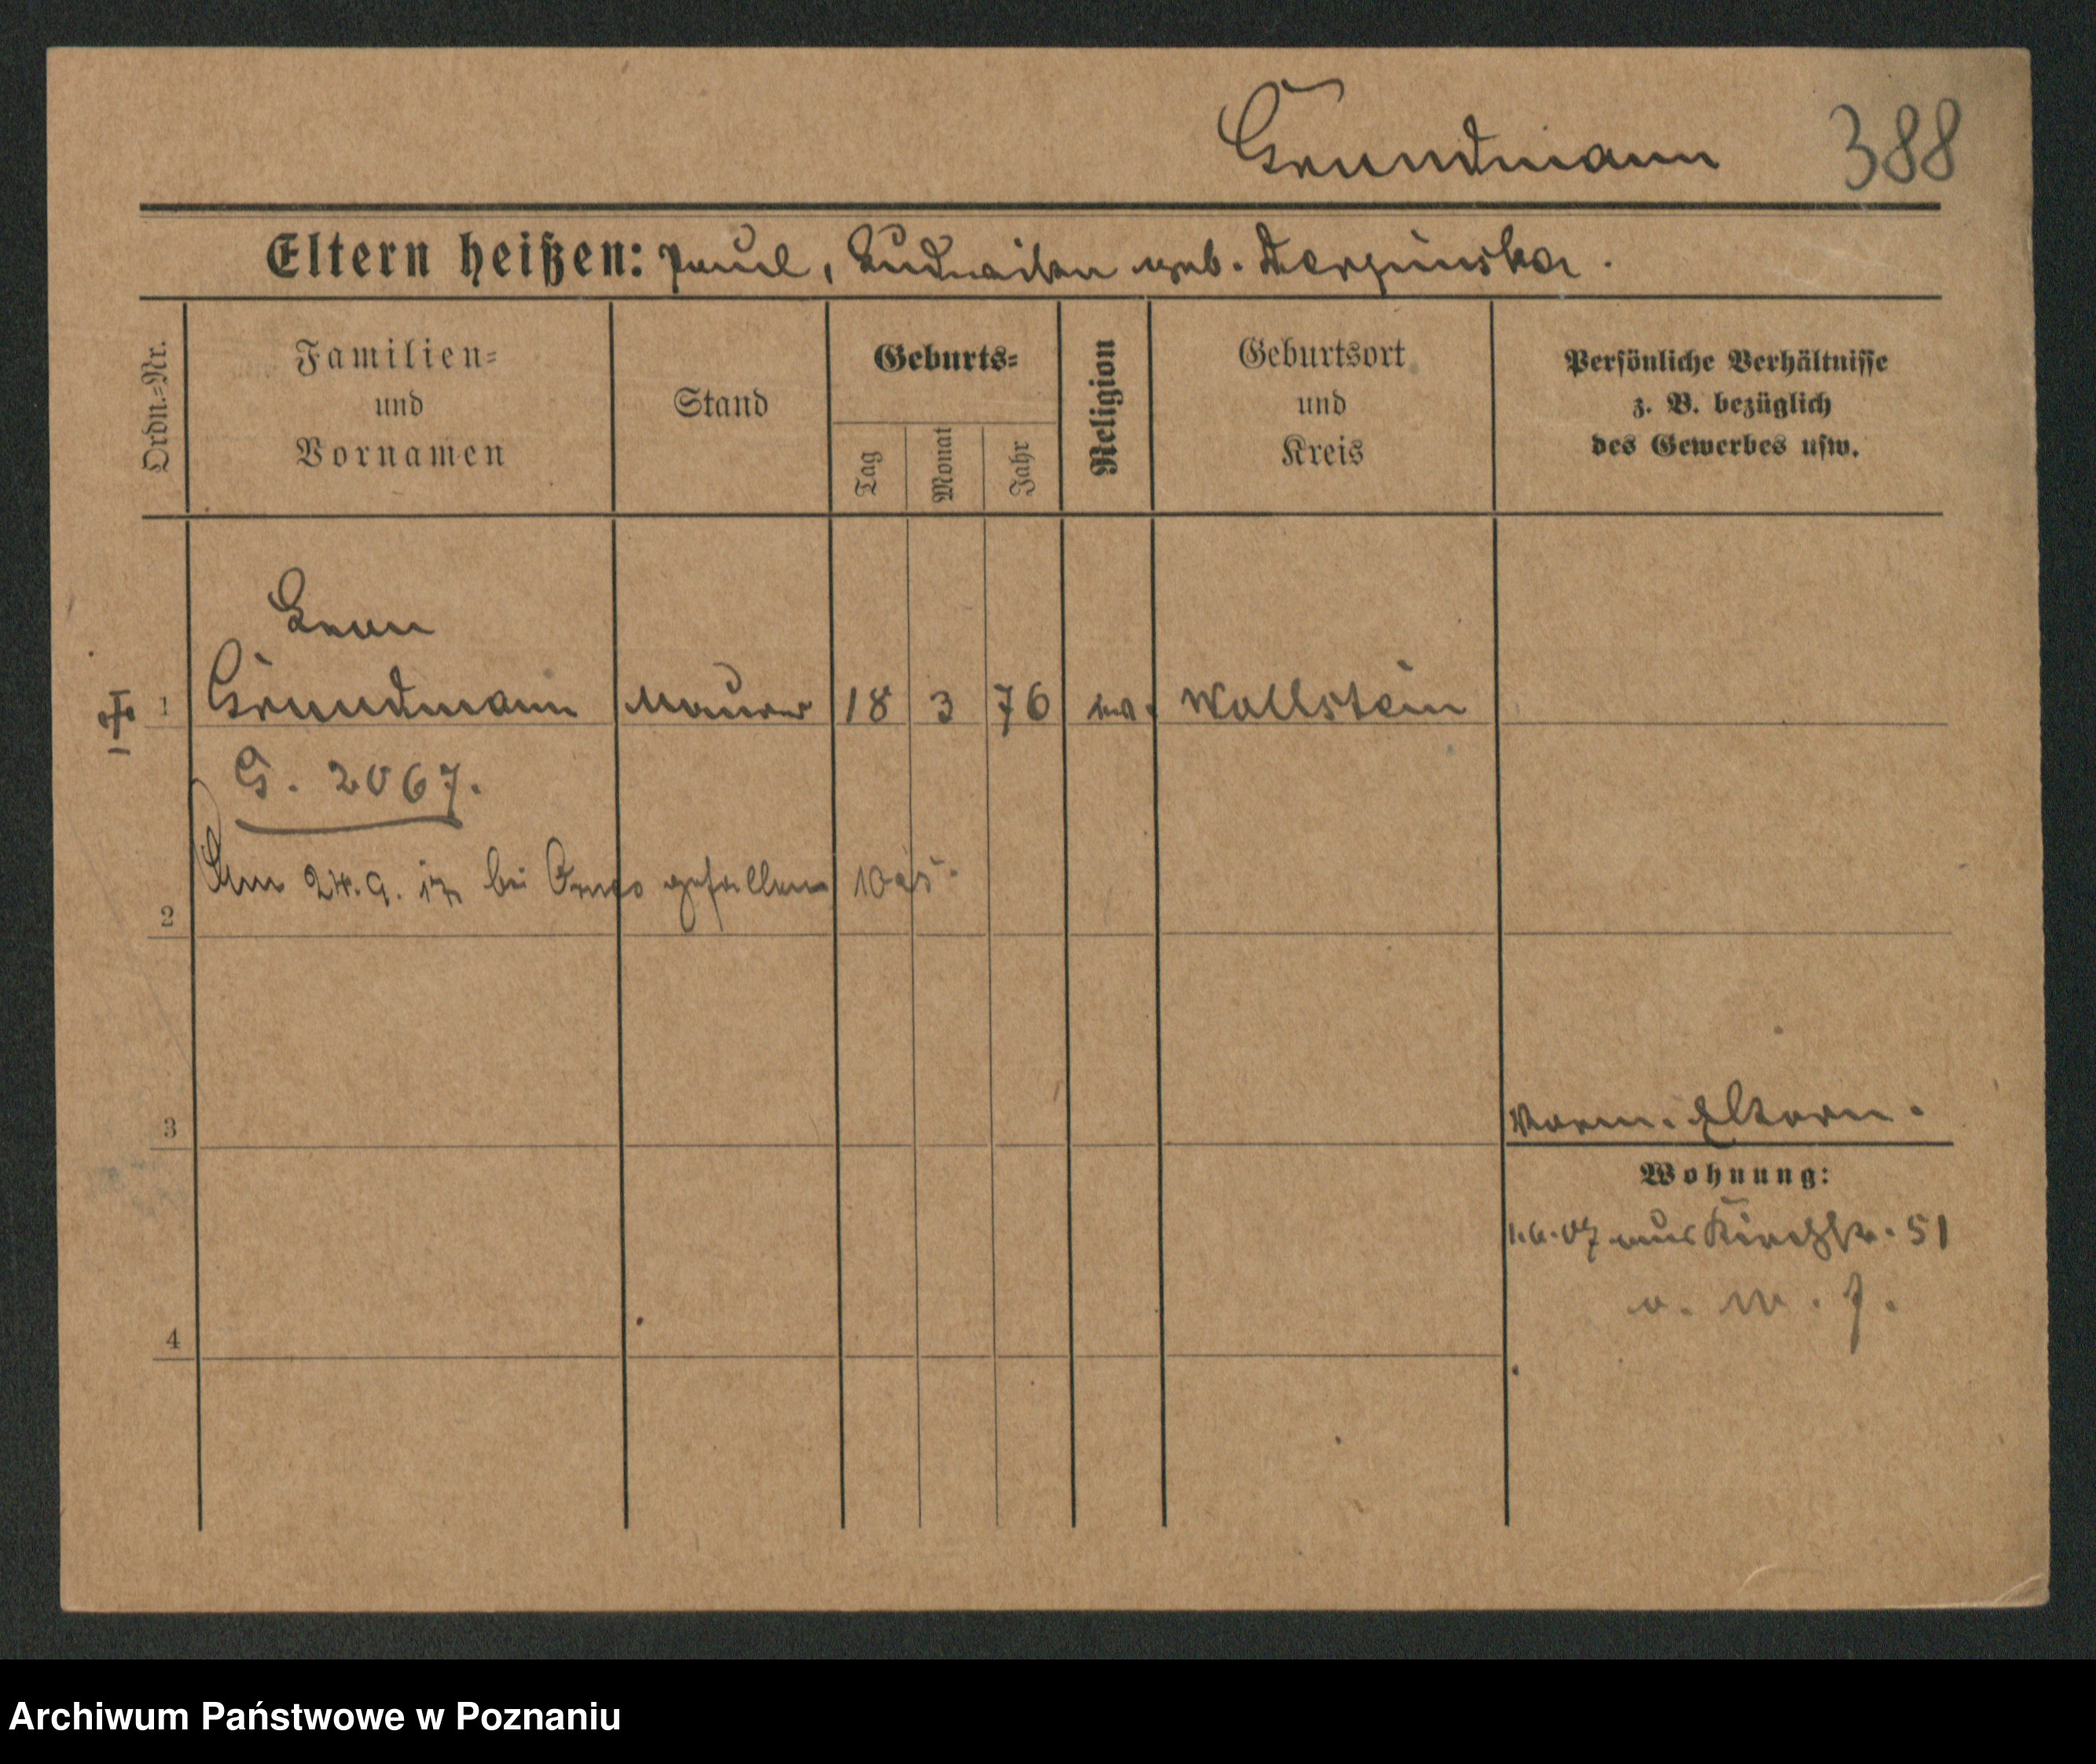 Grundmann 388
Eltern heißen: Paul, Ludwika geb.
Ordn.-Nr.
Familien-
und
Vornamen
Stand
Geburts-
Tag
Monat
Jahr
Religion
Geburtsort
und
Kreis
Persönliche Verhältnisse
z. B. bezüglich
des Gewerbes usw.
Leon
1 Grundmann Maurer 18 3 76 Wollstein
G. 2067.
Am 24.9. bei gefallen
2
3
Eltern.
Wohnung:
aus Kirchstr. 51
4
Archiwum Państwowe w Poznaniu